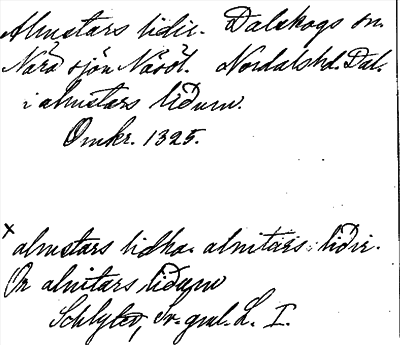 Almstars lidir. Dalskogs sn.
Nära sjön Näsöl. Nordalshd. Dal.
i almstars liðum.
Omkr. 1325.
x almstars lidha. alnitars. liðir.
Or alnitars liðum
Schlyter, Sv. gml. L. I.